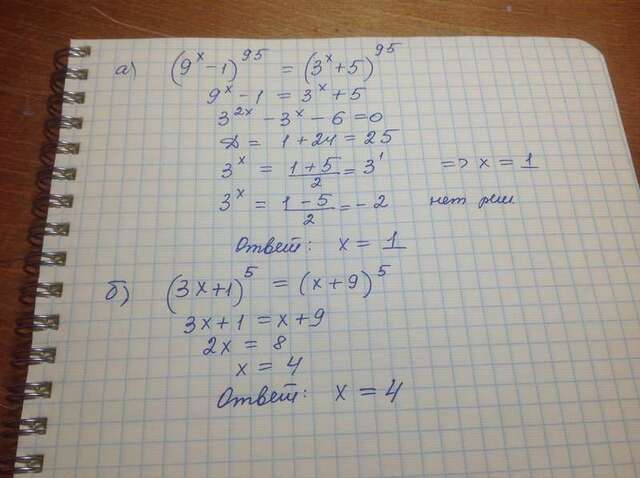 а) (9^x - 1)^95 = (3^x + 5)^95
9^x - 1 = 3^x + 5
3^2x - 3^x - 6 = 0
D = 1 + 24 = 25
3^x = (1 + 5)/2 = 3^1 => x = 1
3^x = (1 - 5)/2 = -2 нет реш
Ответ: x = 1
б) (3x + 1)^5 = (x + 9)^5
3x + 1 = x + 9
2x = 8
x = 4
Ответ: x = 4